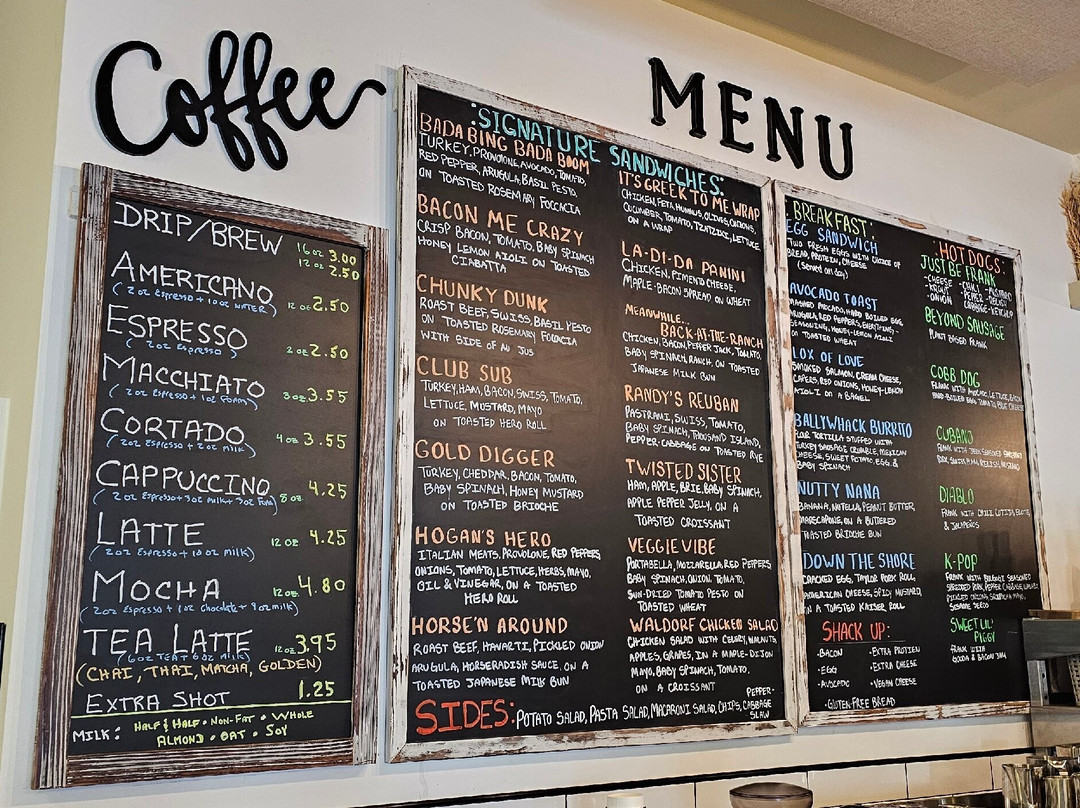 Coffee
MENU
DRIP/BREW 16oz 3.00
12oz 2.50
AMERICANO 12oz 2.50
(2oz Espresso + 10oz WATER)
ESPRESSO 2oz 2.50
(2oz Espresso)
MACCHIATO 3oz 3.55
(2oz Espresso + 1oz Foam)
CORTADO 4oz 3.55
(2oz Espresso + 2oz milk)
CAPPUCCINO 8oz 4.25
(2oz Espresso + 3oz milk + 3oz Foam)
LATTE 12oz 4.25
(2oz Espresso + 10oz milk)
MOCHA 12oz 4.80
(2oz Espresso + 1oz chocolate + 9oz milk)
TEA LATTE 12oz 3.95
(6oz TEA + 6oz milk)
(CHAI, THAI, MATCHA, GOLDEN)
EXTRA SHOT 1.25
MILK: HALF & HALF • NON-FAT • WHOLE
ALMOND • OAT • SOY
:SIGNATURE SANDWICHES:
BADA BING BADA BOOM
TURKEY, PROVOLONE, AVOCADO, TOMATO,
RED PEPPER, ARUGULA, BASIL PESTO,
ON TOASTED ROSEMARY FOCCACIA
BACON ME CRAZY
CRISP BACON, TOMATO, BABY SPINACH
HONEY LEMON AIOLI ON TOASTED
CIABATTA
CHUNKY DUNK
ROAST BEEF, SWISS, BASIL PESTO
ON TOASTED ROSEMARY FOCACCIA
WITH SIDE OF AU JUS
CLUB SUB
TURKEY, HAM, BACON, SWISS, TOMATO,
LETTUCE, MUSTARD, MAYO
ON TOASTED HERO ROLL
GOLD DIGGER
TURKEY, CHEDDAR, BACON, TOMATO,
BABY SPINACH, HONEY MUSTARD
ON TOASTED BRIOCHE
HOGAN'S HERO
ITALIAN MEATS, PROVOLONE, RED PEPPERS,
ONIONS, TOMATO, LETTUCE, HERBS, MAYO,
OIL & VINEGAR, ON A TOASTED
HERO ROLL
HORSE'N AROUND
ROAST BEEF, HAVARTI, PICKLED ONION
ARUGULA, HORSERADISH SAUCE, ON A
TOASTED JAPANESE MILK BUN
IT'S GREEK TO ME WRAP
CHICKEN, FETA, HUMMUS, OLIVES, ONIONS,
CUCUMBER, TOMATO, TZATZIKI, LETTUCE
ON A WRAP
LA-DI-DA PANINI
CHICKEN, PIMENTO CHEESE,
MAPLE-BACON SPREAD ON WHEAT
MEANWHILE...
BACK-AT-THE-RANCH
CHICKEN, BACON, PEPPER JACK, TOMATO,
BABY SPINACH, RANCH, ON TOASTED
JAPANESE MILK BUN
RANDY'S REUBAN
PASTRAMI, SWISS, TOMATO,
BABY SPINACH, THOUSAND ISLAND,
PEPPER-CABBAGE ON TOASTED RYE
TWISTED SISTER
HAM, APPLE, BRIE, BABY SPINACH,
APPLE PEPPER JELLY, ON A
TOASTED CROISSANT
VEGGIE VIBE
PORTABELLA, MOZZARELLA, RED PEPPERS,
BABY SPINACH, ONION, TOMATO,
SUN-DRIED TOMATO PESTO ON
TOASTED WHEAT
WALDORF CHICKEN SALAD
CHICKEN SALAD WITH CELERY, WALNUTS,
APPLES, GRAPES, IN A MAPLE-DIJON
MAYO, BABY SPINACH, TOMATO,
ON A CROISSANT
SIDES: POTATO SALAD, PASTA SALAD, MACARONI SALAD, CHIPS, PEPPER-CABBAGE
SLAW
BREAKFAST:
EGG SANDWICH
TWO FRESH EGGS WITH CHOICE OF
BREAD, PROTEIN, CHEESE
(Served all day)
AVOCADO TOAST
MASHED AVOCADO, HARD BOILED EGG
ARUGULA, RED PEPPERS, EVERYTHING-
SEASONING, HONEY-LEMON AIOLI
ON TOASTED WHEAT
LOX OF LOVE
SMOKED SALMON, CREAM CHEESE,
CAPERS, RED ONIONS, HONEY-LEMON
AIOLI ON A BAGEL
BALLYWHACK BURRITO
FLOUR TORTILLA STUFFED WITH
TURKEY SAUSAGE CRUMBLE, MEXICAN
CHEESE, SWEET POTATO, EGG, &
BABY SPINACH
NUTTY NANA
BANANA, NUTELLA, PEANUT BUTTER,
MARSCAPONE, ON A BUTTERED
TOASTED BRIOCHE BUN
DOWN THE SHORE
CRACKED EGG, TAYLOR PORK ROLL,
AMERICAN CHEESE, SPICY MUSTARD,
ON A TOASTED KAISER ROLL
SHACK UP:
-BACON -EXTRA PROTIEN
-EGG -EXTRA CHEESE
-AVOCADO -VEGAN CHEESE
-GLUTEN-FREE BREAD
:HOT DOGS:
JUST BE FRANK
-CHEESE -CHILI -MUSTARD
-KRAUT -PEPPER -RELISH
-ONION CABBAGE -KETCHUP
BEYOND SAUSAGE
PLANT BASED FRANK
COBB DOG
FRANK WITH AVOCADO, LETTUCE, BACON
HARD-BOILED EGG, TOMATO, BLUE CHEESE
CUBANO
PORK, SWISS, HAM, RELISH, MUSTARD
DIABLO
& JALAPEÑOS
K-POP
FRANK WITH BULGOGI SEASONED
SHREDDED PORK, PEPPER CABBAGE,
PICKLED ONIONS, SRIRACHA MAYO,
SESAME SEEDS
SWEET LIL'
PIGGY
FRANK WITH
GOUDA & BACON JAM